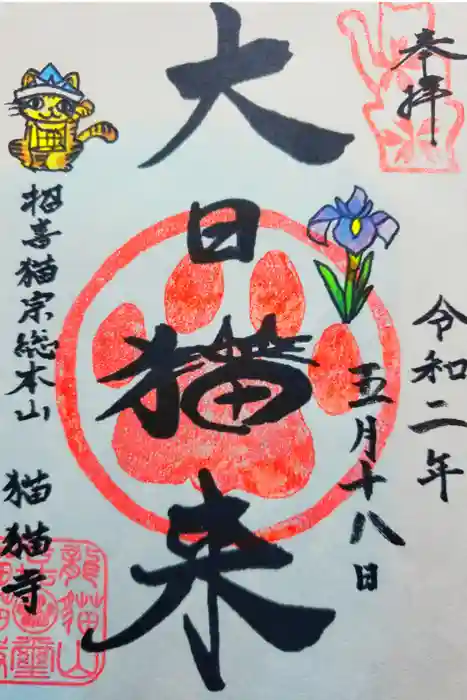 奉拝
令和二年
五月十八日
大日猫来
招喜猫宗総本山
猫猫寺
龍猫山